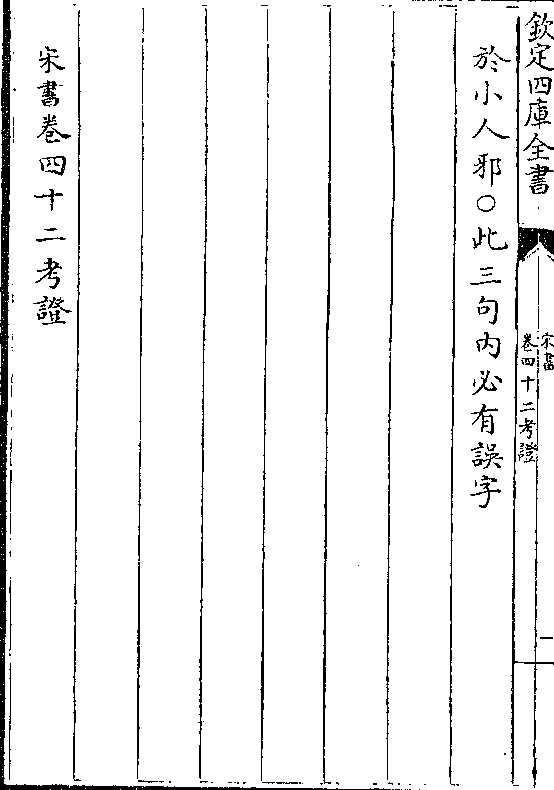 欽定四庫全書
宋書
卷四十二考證
於小人邪○此三句內必有誤字
宋書卷四十二考證